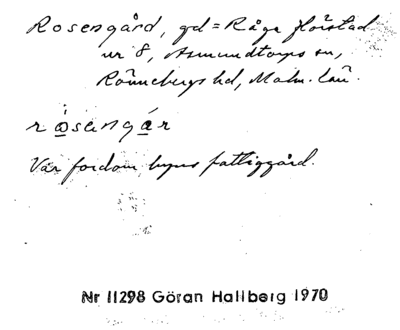 Rosengård, gd = Råga Hörstad
nr 8, Asmundtorps sn,
Rönnebergs hd, Malm. län.
rosengár
Var fordom byns fattiggård.
Nr 11298 Göran Hallberg 1970